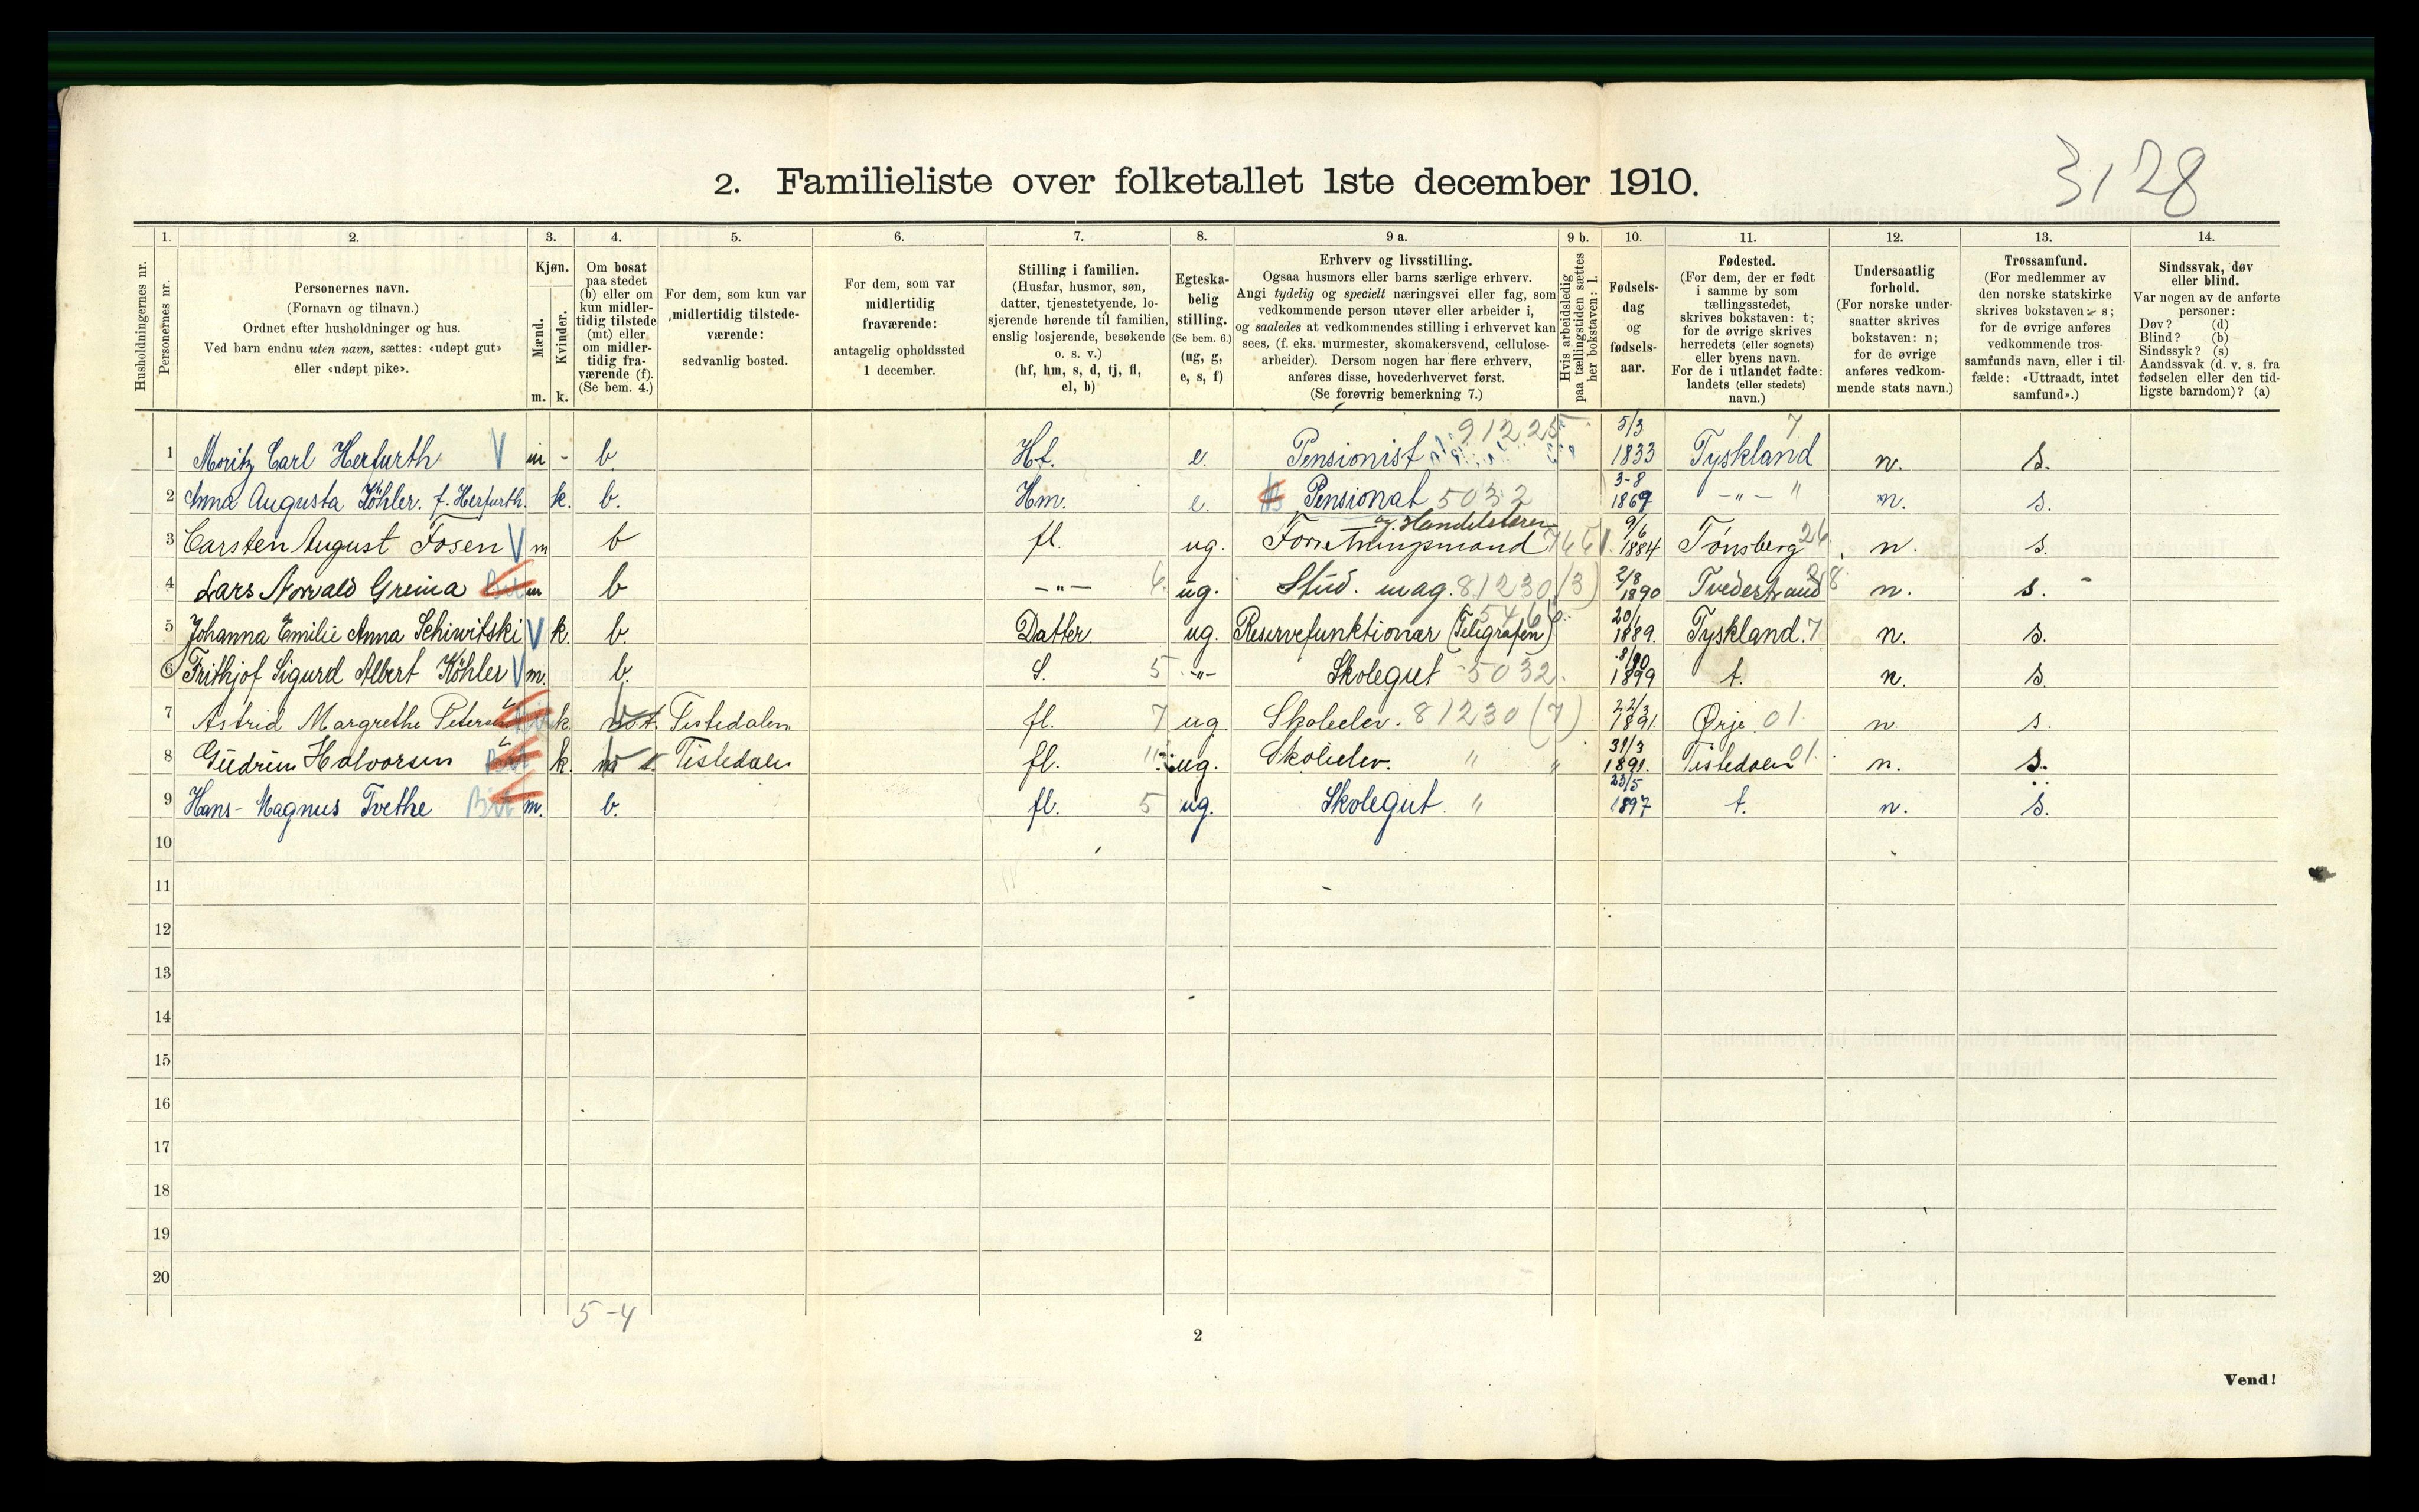 3128
2. Familieliste over folketallet 1ste december 1910.
1. 2. 3. 4. 5. 6. 7. 8. 9 a. 9 b. 10. 11. 12. 13. 14.
Husholdningernes nr.
Personernes nr.
Personernes navn.
(Fornavn og tilnavn.)
Ordnet efter husholdninger og hus.
Ved barn endnu uten navn, sættes: «udøpt gut»
eller «udøpt pike».
Kjøn.
Mænd.
Kvinder.
m. k.
Om bosat
paa stedet
(b) eller om
kun midler-
tidig tilstede
(mt) eller
om midler-
tidig fra-
værende (f).
(Se bem. 4.)
For dem, som kun var
midlertidig tilstede-
værende:
sedvanlig bosted.
For dem, som var
midlertidig
fraværende:
antagelig opholdssted
1 december.
Stilling i familien.
(Husfar, husmor, søn,
datter, tjenestetyende, lo-
sjerende hørende til familien,
enslig losjerende, besøkende
o. s. v.)
(hf, hm, s, d, tj, fl,
el, b)
Egteska-
belig
stilling.
(Se bem. 6.)
(ug, g,
e, s, f)
Erhverv og livsstilling.
Ogsaa husmors eller barns særlige erhverv.
Angi tydelig og specielt næringsvei eller fag, som
vedkommende person utøver eller arbeider i,
og saaledes at vedkommendes stilling i erhvervet kan
sees, (f. eks. murmester, skomakersvend, cellulose-
arbeider). Dersom nogen har flere erhverv,
anføres disse, hovederhvervet først.
(Se forøvrig bemerkning 7.)
Hvis arbeidsledig
paa tællingstiden sættes
her bokstaven: l.
Fødsels-
dag
og
fødsels-
aar.
Fødested.
(For dem, der er født
i samme by som
tællingsstedet,
skrives bokstaven: t;
for de øvrige skrives
herredets (eller sognets)
eller byens navn.
For de i utlandet fødte:
landets (eller stedets)
navn.)
Undersaatlig
forhold.
(For norske under-
saatter skrives
bokstaven: n;
for de øvrige
anføres vedkom-
mende stats navn.)
Trossamfund.
(For medlemmer av
den norske statskirke
skrives bokstaven: s;
for de øvrige anføres
vedkommende tros-
samfunds navn, eller i til-
fælde: «Uttraadt, intet
samfund».)
Sindssvak, døv
eller blind.
Var nogen av de anførte
personer:
Døv? (d)
Blind? (b)
Sindssyk? (s)
Aandssvak (d. v. s. fra
fødselen eller den tid-
ligste barndom)? (a)
1 Moritz Carl Herfurth V m - b. Hf. e. Pensionist 91225 5/3 1833 Tyskland 7 n. s.
2 Anna Augusta Köhler. f. Herfurth. k. b. Hm. e. Pensionat 5032 3-8 1869 -"- " n. s.
3 Carsten August Fosen V m b fl. ug. Forretningsmand og Handelslærer 9/6 1884 Tønsberg 26 n. s.
4 Lars Norvald Greina m b -"- 6 ug. Stud. mag. 81230 (3) 2/8 1890 Tvedestrand 8 n. s. -
5 Johanna Emilie Anna Schiwitski V k. b. Datter. ug. Reservefunktionær (Telegrafen) 20/1 1889. Tyskland. 7 n. s.
6 Frithjof Sigurd Albert Köhler V m. b. S. 5 -"- Skolegut 5032. 8/10 1899 t. n. s.
7 Astrid Margrethe Petersen k. Tistedalen fl. 7 ug Skoleelev. 81230 (7) 22/3 1891. Ørje 01. n. s.
8 Gudrun Halvorsen k. Tistedalen fl. " ug. Skoleelev. " " 31/3 1891. Tistedalen 01. n. s.
9 Hans-Magnus Tvethe m. b. fl. 5 ug. Skolegut. " 23/5 1897 t. n. s.
10
11
12
13
14
15
16
17
18
19
20
5-4
2
Vend!